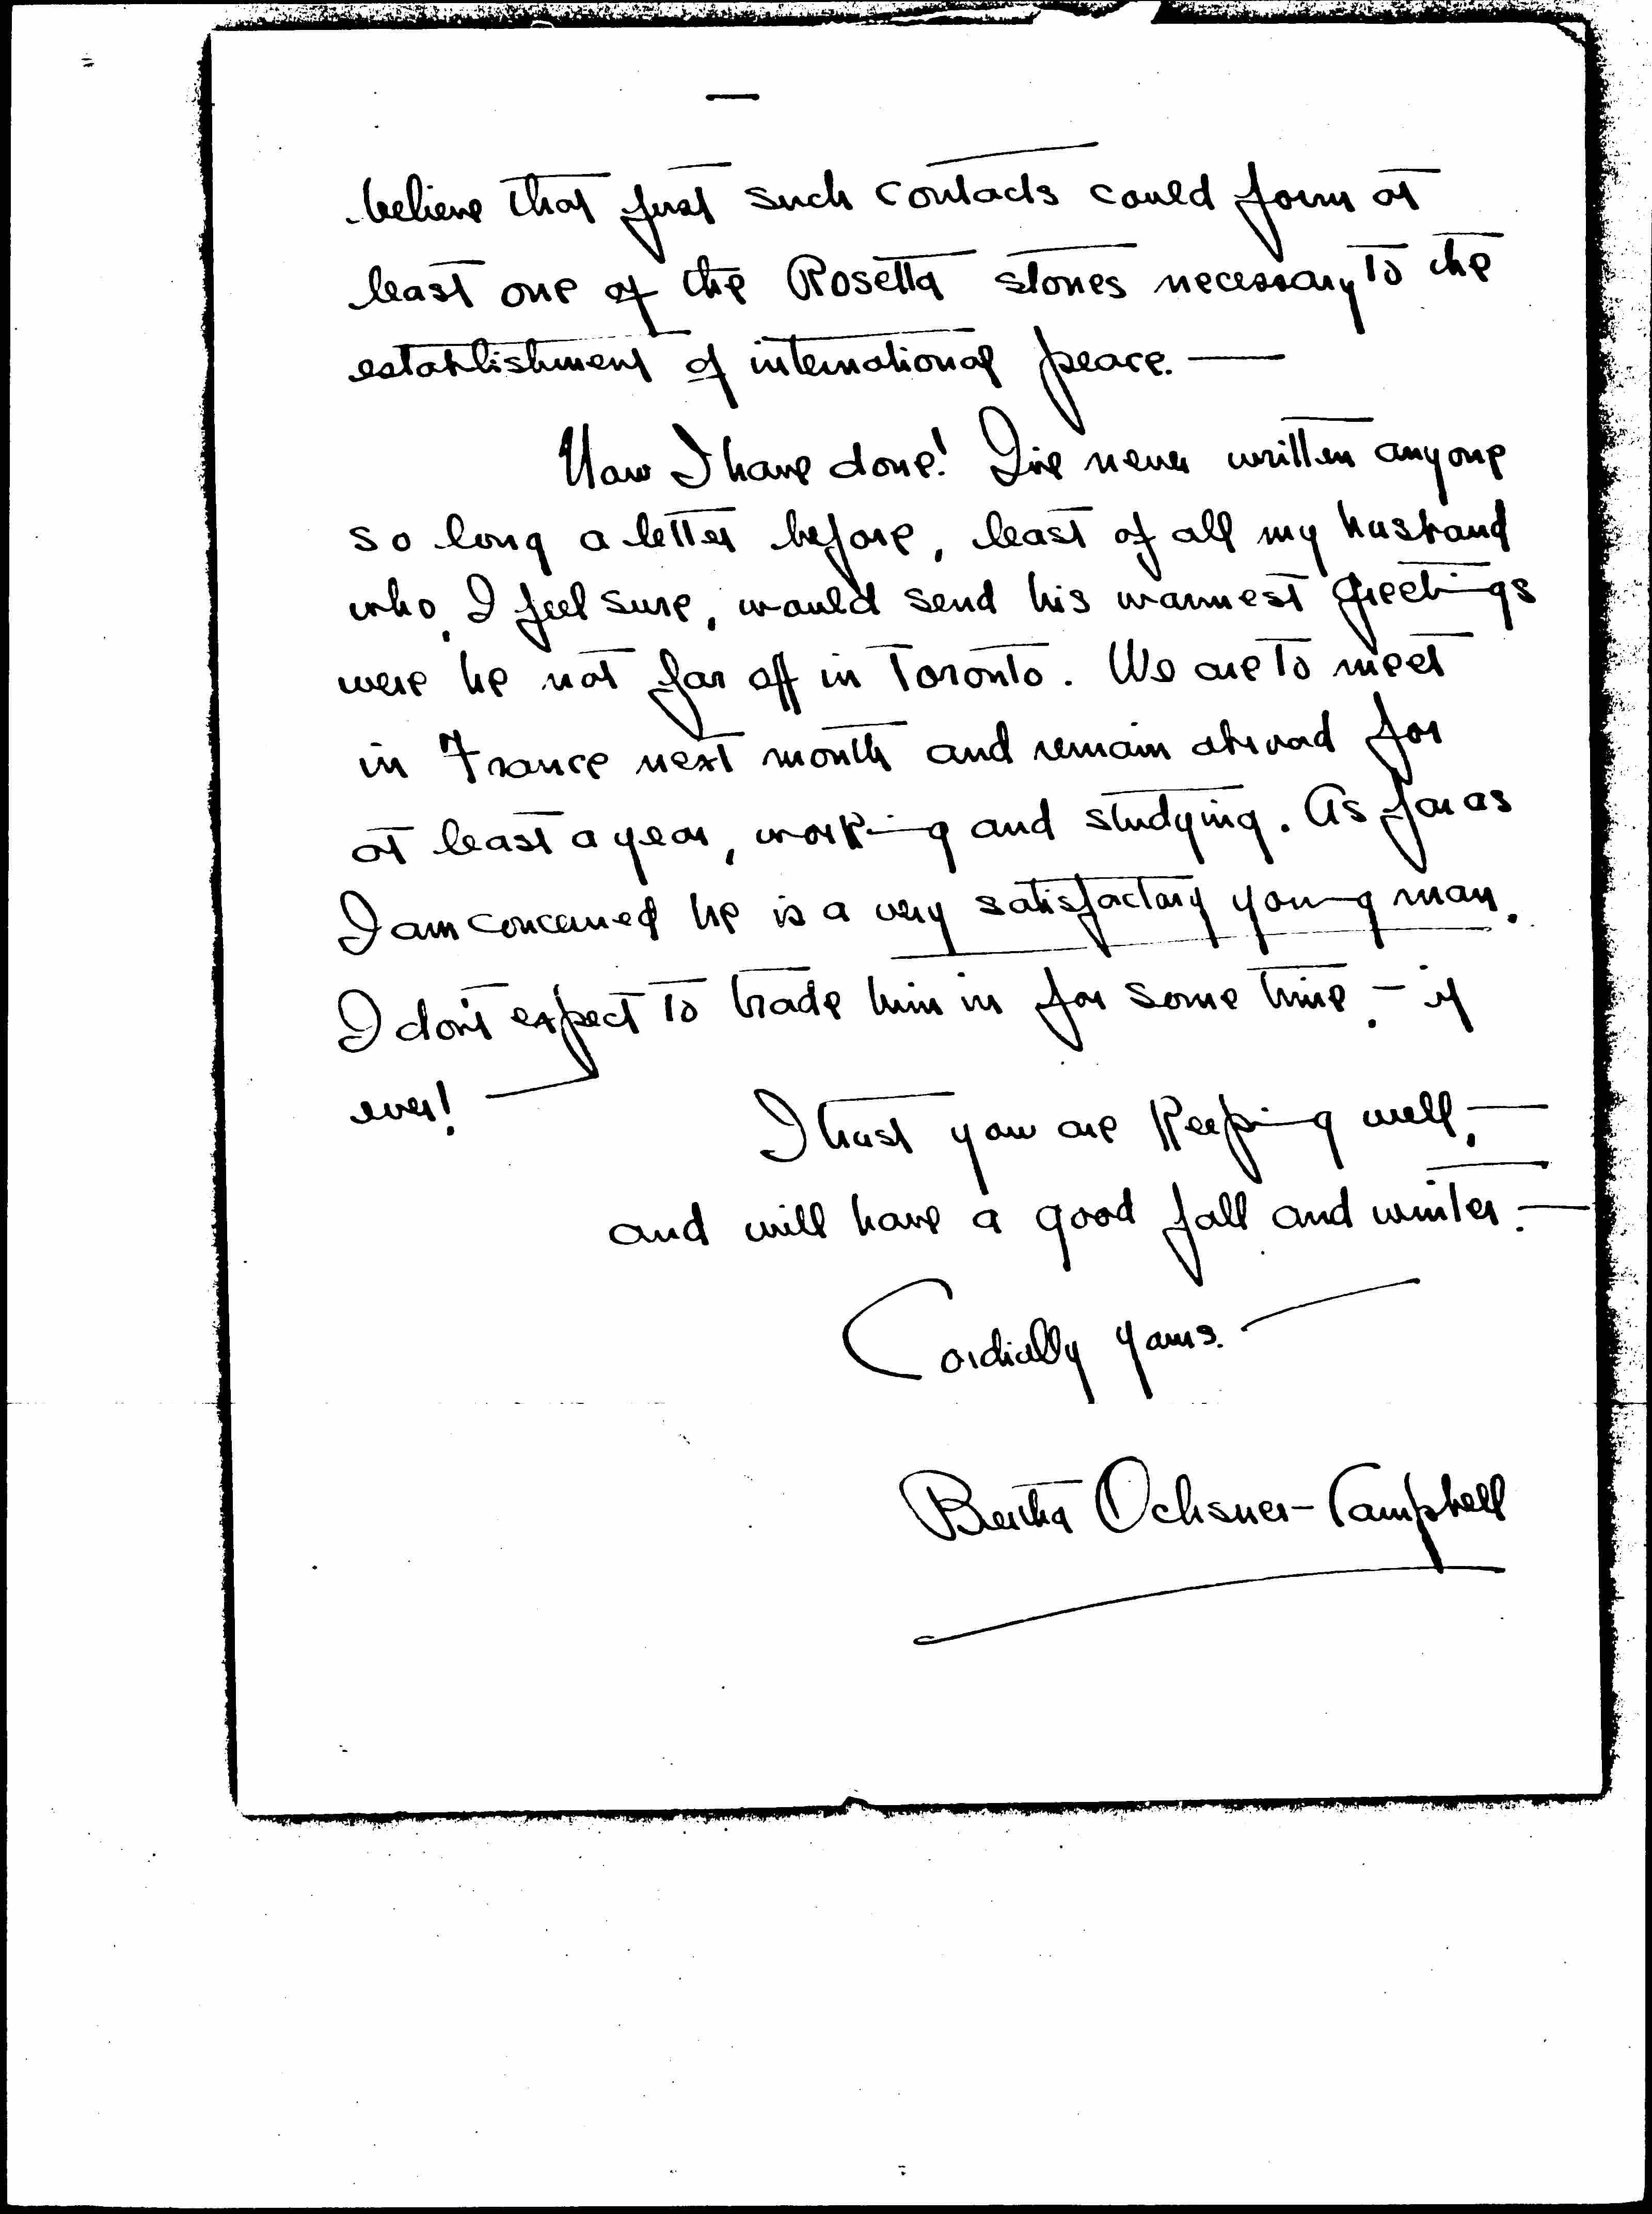 believe that just such contacts could form at
least one of the Rosetta stones necessary to the
establishment of international peace. —
Now I have done! I've never written anyone
so long a letter before, least of all my husband
who, I feel sure, would send his warmest greetings
were he not far off in Toronto. We are to meet
in France next month and remain abroad for
at least a year, working and studying. As far as
I am concerned he is a very satisfactory young man.
I don't expect to trade him in for some time, - if
ever! —
I trust you are keeping well, —
and will have a good fall and winter. —
Cordially yours. —
Bertha Ochsner-Campbell